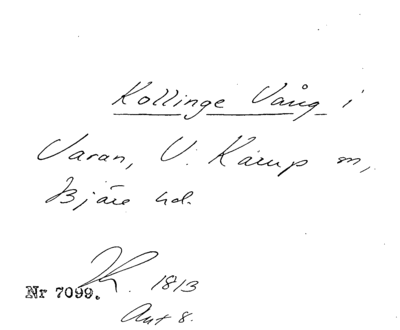 Kollinge Vång i
Varan, V. Karup sn,
Bjäre hd.
K. 1813
Nr 7099.
Akt 8.